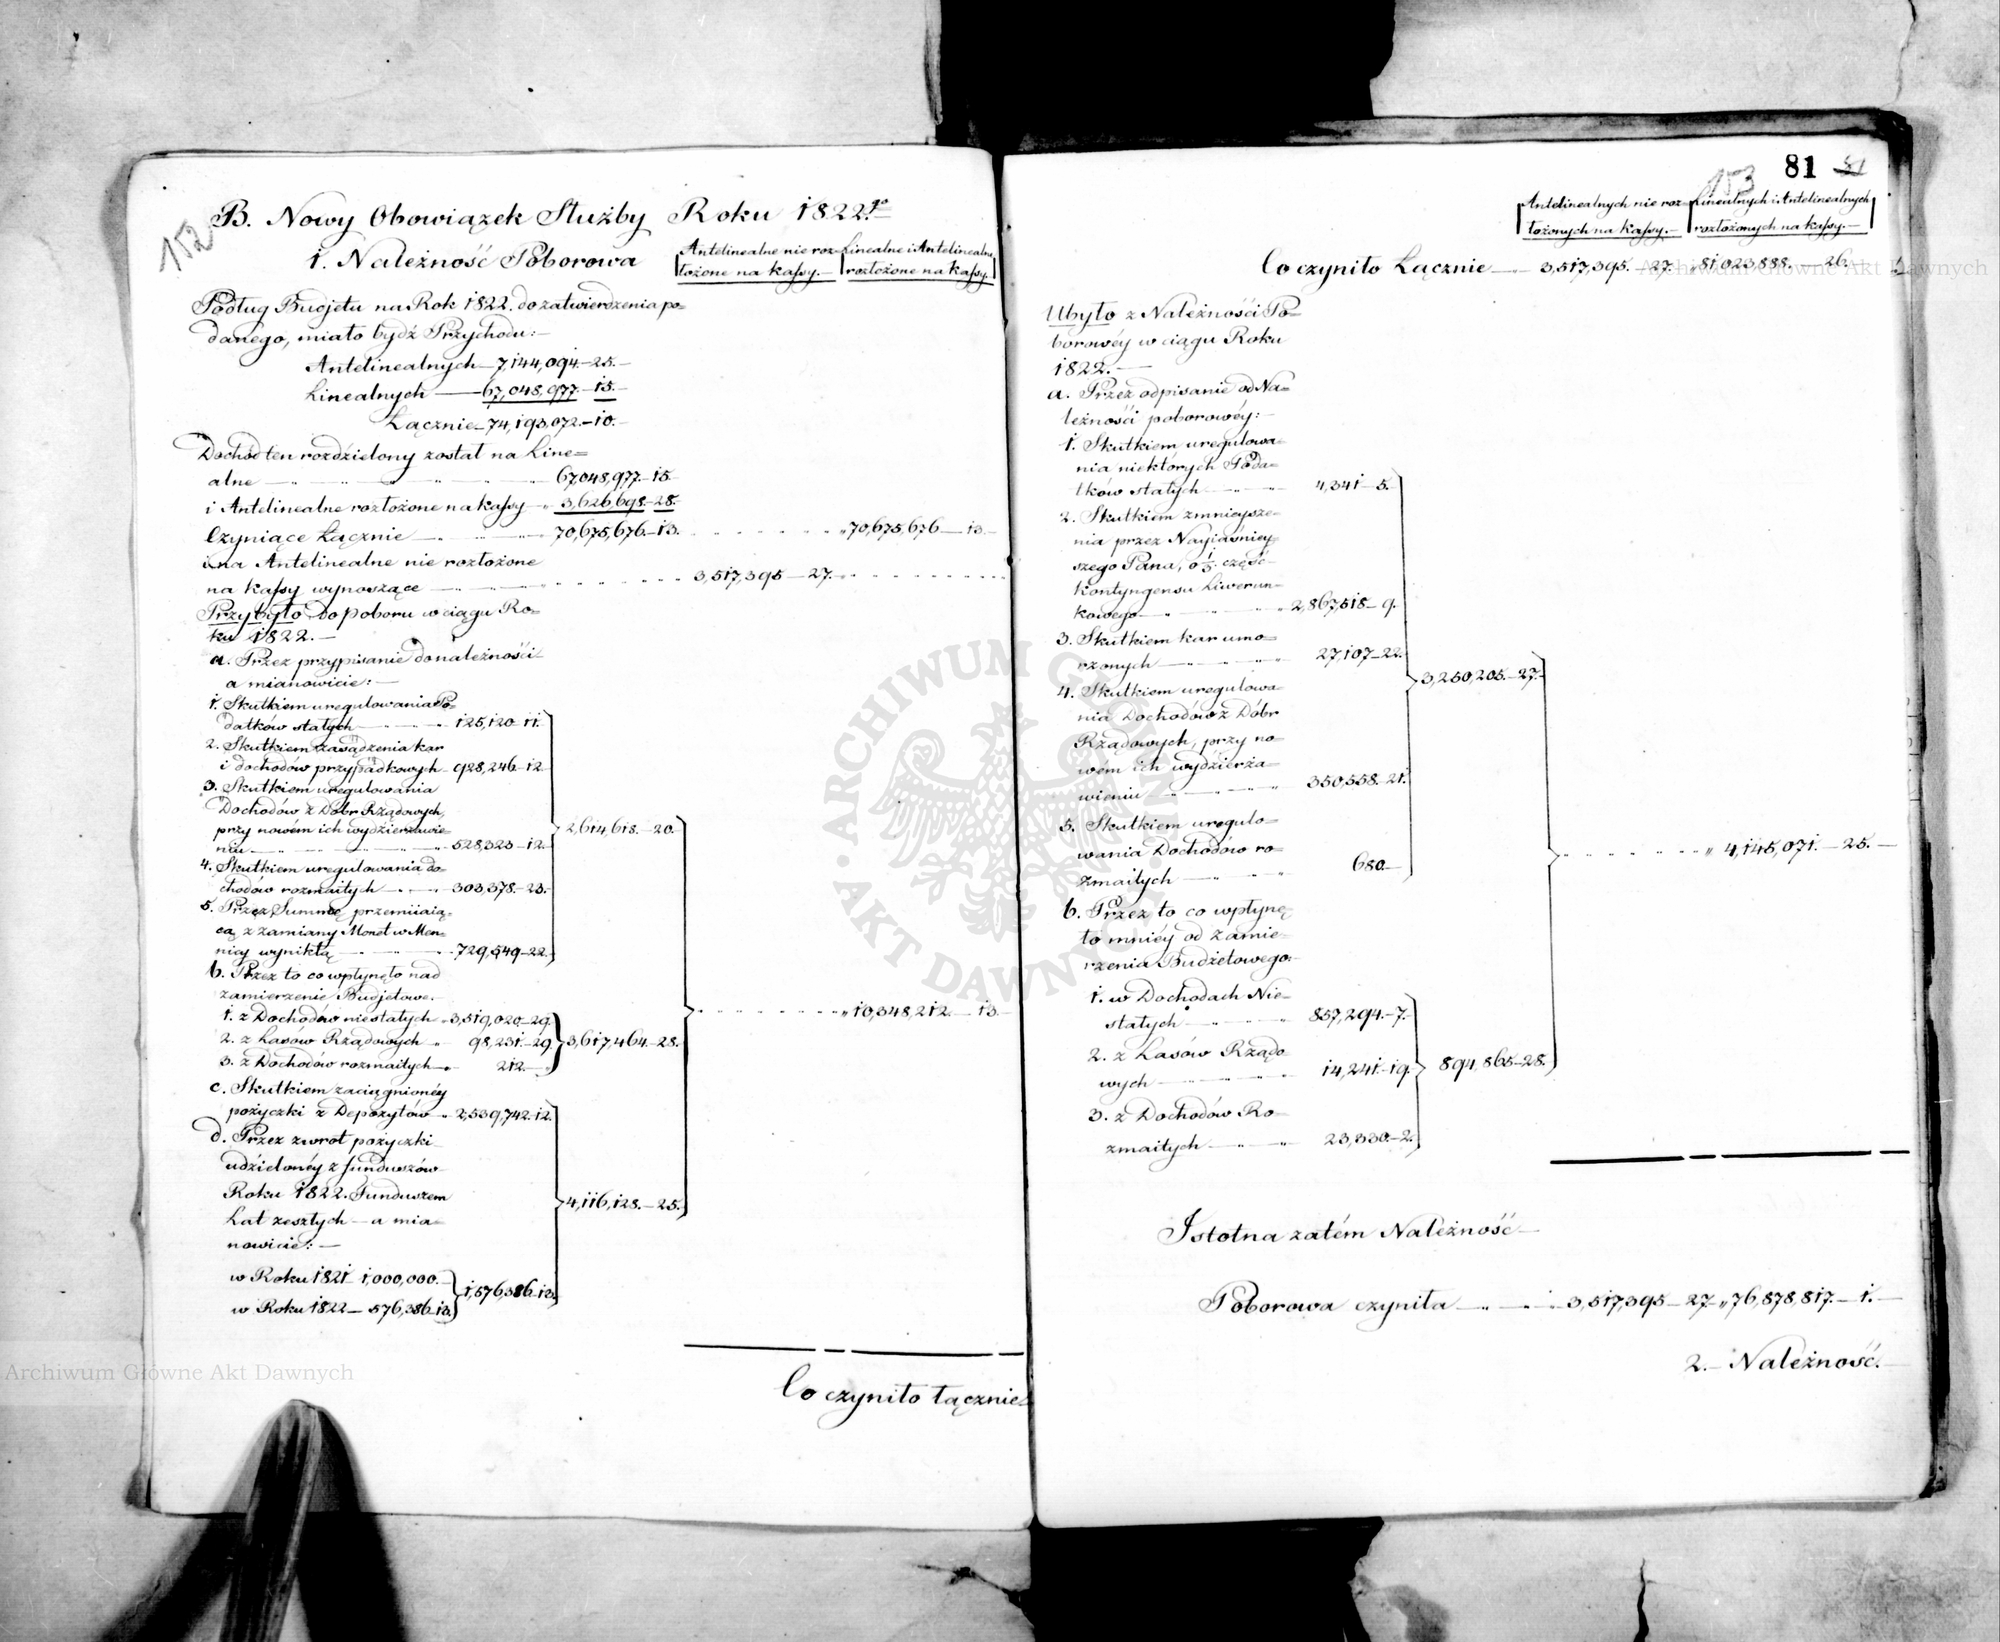 152
B. Nowy Obowiązek Służby Roku 1822.go
1. Należność Poborowa
Antelinealne nie roz=
łożone na kassy.—
Linealne i Antelinealne
rozłożone na kassy.
Podług Budjetu na Rok 1822. do zatwierdzenia po=
danego, miało bydź Przychodu:—
Antelinealnych — 7,144,094.—25.—
Linealnych — 67,048,977.—15.—
Łącznie — 74,193,072.—10.—
Dochód ten rozdzielony został na Line=
alne — 67,048,977.—15.
i Antelinealne rozłożone na kassy — 3,626,698.—28.
Czyniące Łącznie — 70,675,676.—13. „ 70,675,676 — 13.—
i na Antelinealne nie rozłożone
na kassy wynoszące — 3,517,395 — 27.
Przybyło do poboru w ciągu Ro=
ku 1822.—
a. Przez przypisanie do należności
a mianowicie:—
1. Skutkiem uregulowania Po=
datków stałych — 125,120 11.
2. Skutkiem zasądzenia kar
i dochodów przypadkowych — 928,246.—12.
3. Skutkiem uregulowania
Dochodów z Dóbr Rządowych,
przy nowém ich wydzierżawie=
niu — 528,323—12.
4. Skutkiem uregulowania do=
chodów rozmaitych — 303,378.—23.
5. Przez Summę przemiiaią=
cą z zamiany Monet w Men=
nicy wynikłą — 729,549—22.
2,614,618.—20.
b. Przez to co wpłynęło nad
zamierzenie Budjetowe.
1. z Dochodów niestałych „ 3,519,020—29.
2. z Lasów Rządowych „ 98,231.—29.
3. z Dochodów rozmaitych „ 212.—
3,617,464.—28.
c. Skutkiem zaciągnionéy
pożyczki z Depozytów „ 2,539,742.12.
d. Przez zwrot pożyczki
udzielonéy z funduszów
Roku 1822. Funduszem
Lat zeszłych — a mia=
nowicie:—
w Roku 1821 1,000,000.—
w Roku 1822 — 576,386.13.
1,576,386—13.
4,116,128.—25.
„ 10,348,212.—13.—
Co czyniło łącznie
153
81
Antelinealnych nie roz=
łożonych na kassy.—
Linealnych i Antelinealnych
rozłożonych na kassy.—
Co czyniło Łącznie — 3,517,395.—27. „ 81,023,888.—26.
Ubyło z Należności Po=
borowéy w ciągu Roku
1822.—
a. Przez odpisanie od Na=
leżności poborowéy:—
1. Skutkiem uregulowa=
nia niektórych Poda=
tków stałych — 4,341—5.
2. Skutkiem zmnieysze=
nia przez Nayiaśniey=
szego Pana, o 1/5. część
kontyngensu Liwerun=
kowego — 2,867,518—9.
3. Skutkiem kar umo=
rzonych — 27,107—22.
4. Skutkiem uregulowa=
nia Dochodów z Dóbr
Rządowych, przy no=
wém ich wydzierża=
wieniu — 350,558.21.
5. Skutkiem uregulo=
wania Dochodów ro=
zmaitych — 680.—
3,250,205.—27.
b. Przez to co wpłynę=
ło mniéy od zamie=
rzenia Budżetowego:
1. w Dochodach Nie=
stałych — 857,294.—7.
2. z Lasów Rządo=
wych — 14,241.—19.
3. z Dochodów Ro=
zmaitych — 23,330.—2.
894,865—28.
„ 4,145,071.—25.—
Istotna zatém Należność—
Poborowa czyniła — 3,517,395—27. „ 76,878,817.—1.—
2.— Należność.—
ARCHIWUM GŁÓWNE AKT DAWNYCH
Archiwum Główne Akt Dawnych
Archiwum Główne Akt Dawnych